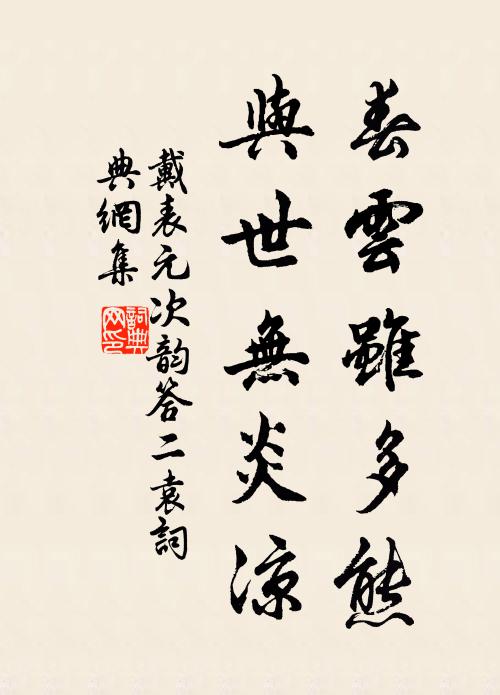 春雲雖多態
與世無炎涼
戴表元次韵答二袁詞
典網集
詞典
网印